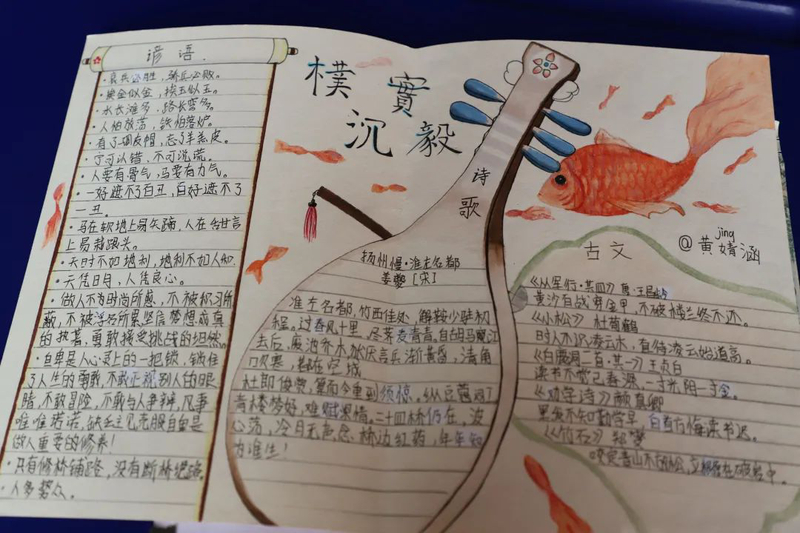 谚语
·骄兵必败。
·黄金似金，换玉似玉。
·水长滩多，路长弯多。
·人怕放荡，铁怕落炉。
·有了调皮帽，忘了羊羔皮。
·宁可认错，不可说谎。
·人要有骨气，马要有力气。
·一好遮不了百丑，百好遮不了
一丑。
·马在软地上易失蹄，人在甜言
上易栽跟头。
·天时不如地利，地利不如人和。
·天凭日月，人凭良心。
·做人不为时尚所惑，不被积习所
蔽，不被浮名所累坚信梦想成真
的执著，勇敢接受挑战的坦然。
·自卑是人心灵上的一把锁，锁住
了人生的勇敢，不敢正视别人的眼
睛，不敢冒险，不敢与人争辩，凡事
唯唯诺诺，
做人重要的修养！
·只有修桥铺路，没有断桥绝路。
·人多势众。
樸實
沉毅
诗歌
扬州慢·淮左名都
姜夔［宋］
淮左名都，竹西佳处，解鞍少驻初
程。过春风十里，尽荠麦青青。自胡马窥江
去后，废池乔木，犹厌言兵。渐黄昏，清角
吹寒，都在空城。
杜郎俊赏，算而今重到须惊。纵豆蔻词工
青楼梦好，难赋深情。二十四桥仍在，波
心荡，冷月无声。念桥边红药，年年知
为谁生！
jing
@黄婧涵
古文
《从军行·其四》唐·王昌龄
黄沙百战穿金甲，不破楼兰终不还。
《小松》 杜荀鹤
时人不识凌云木，直待凌云始道高。
《白鹿洞二首·其一》王贞白
读书不觉已春深，一寸光阴一寸金。
《劝学诗》颜真卿
黑发不知勤学早，白首方悔读书迟。
《竹石》郑燮
咬定青山不放松，立根原在破岩中。